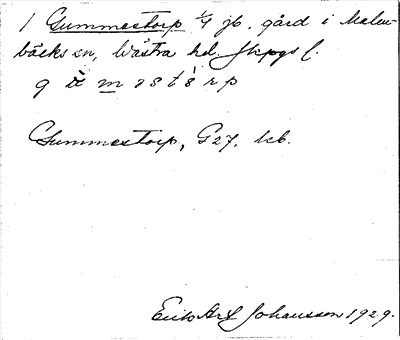 1 Gummestorp 1/4 jb. gård i Malm-
bäcks sn, Västra hd. Jkpgs l.
Gummestorp, G27. kb.
Erik Axel Johansson 1929.